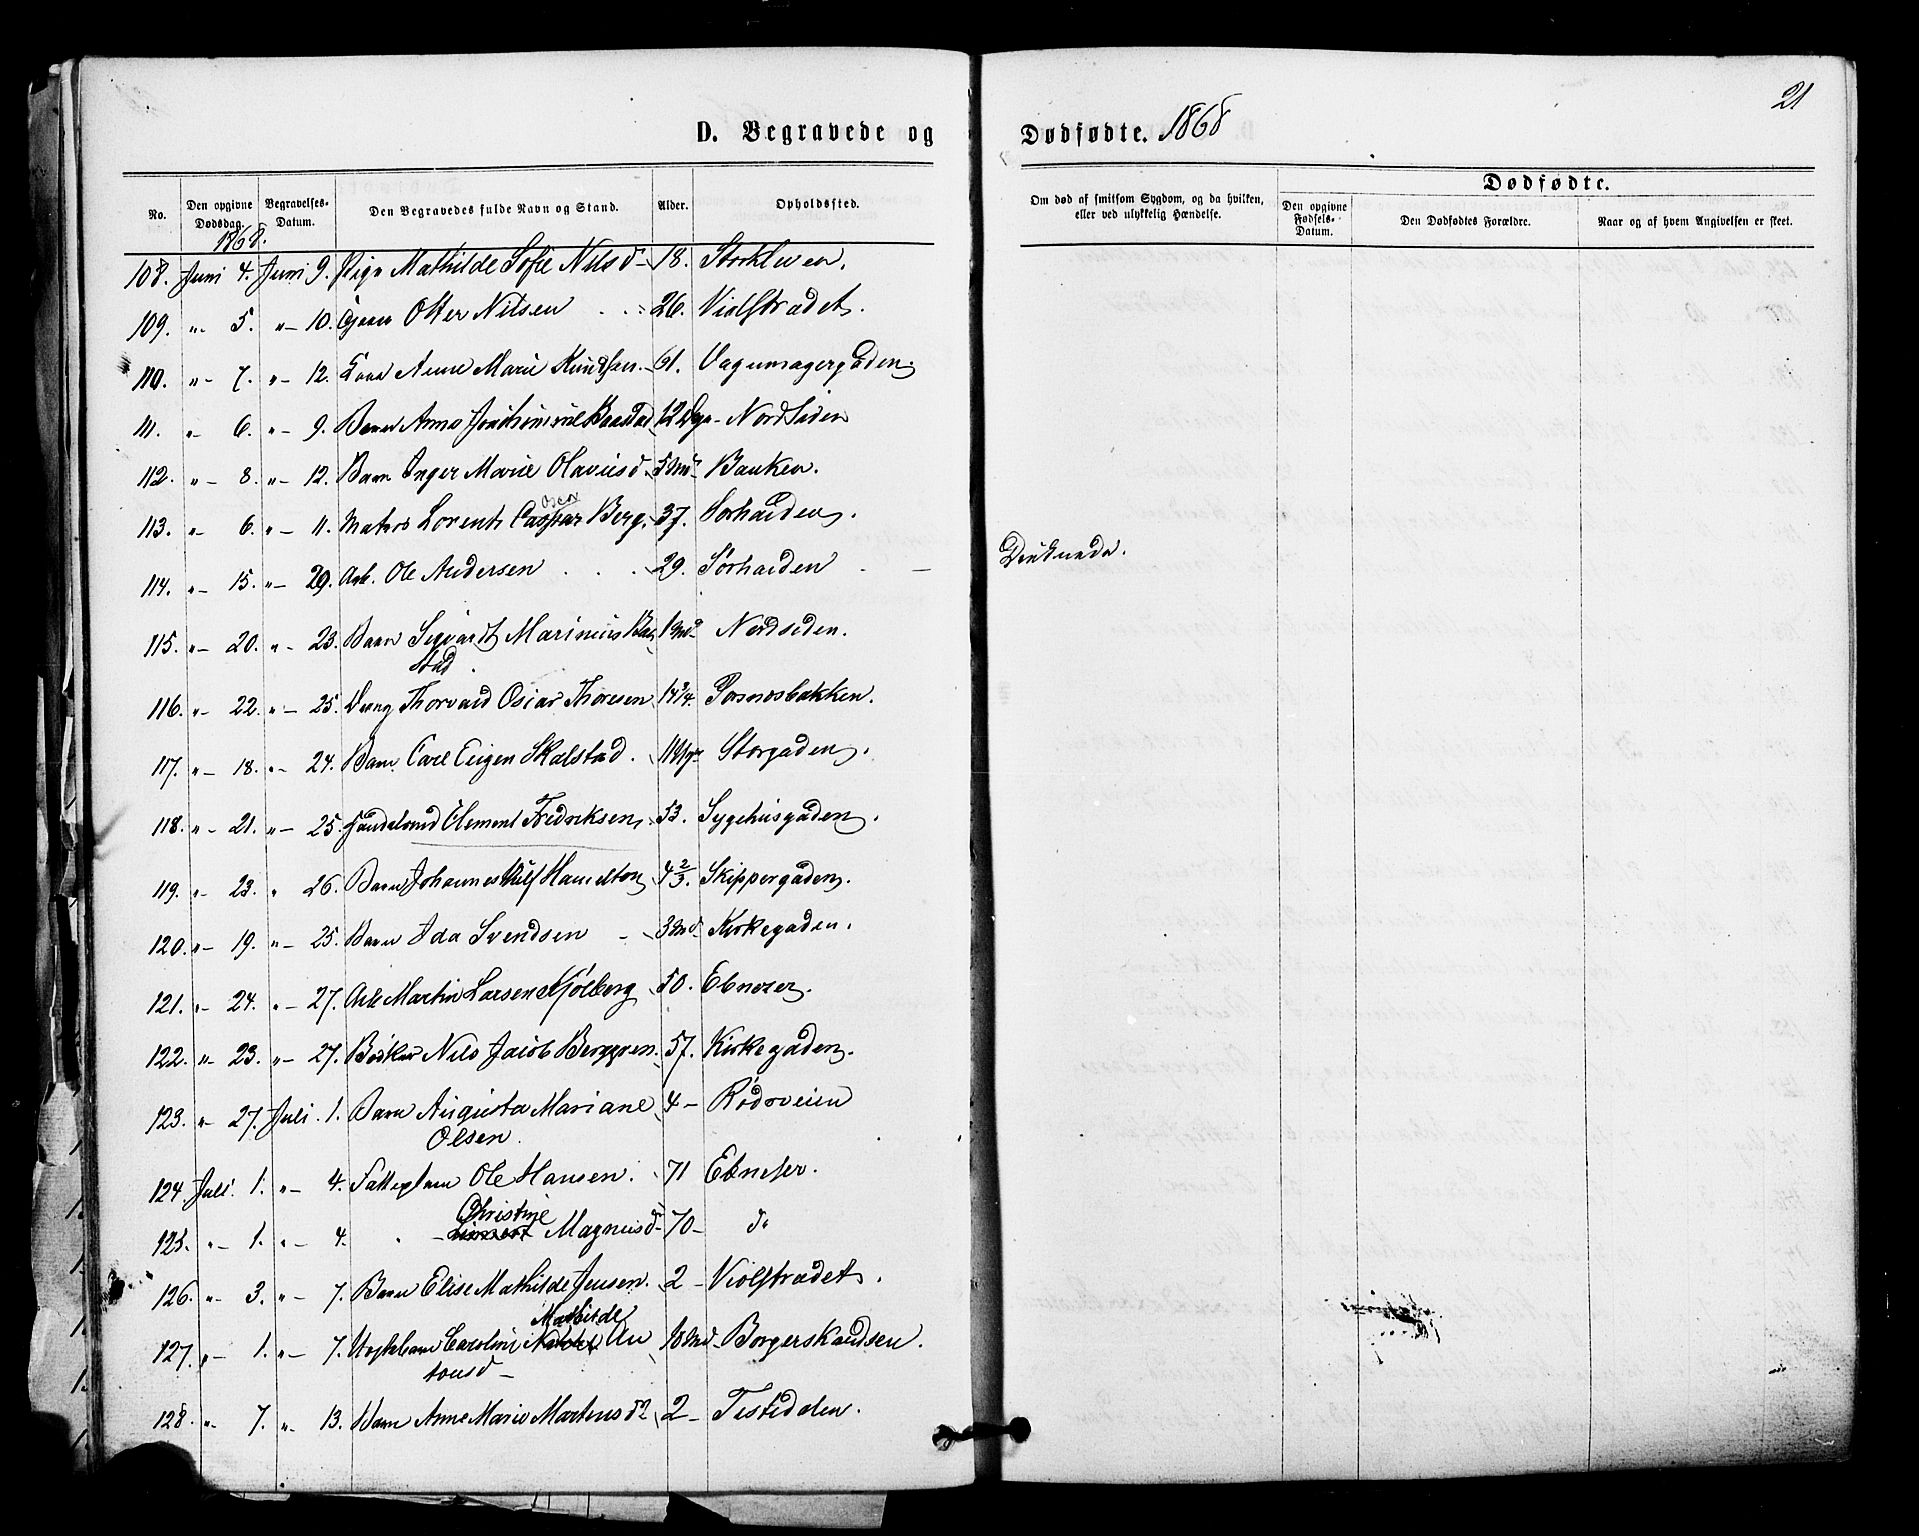 D. Begravede og
Dødfødte. 1868
21
No.
Den opgivne Dødsdag.
Begravelses-Datum.
Den Begravedes fulde Navn og Stand.
Alder.
Opholdssted.
Om død af smitsom Sygdom, og da hvilken, eller ved ulykkelig Hændelse.
Dødfødte.
Den opgivne Fødsels-Datum.
Den Dødfødtes Forældre.
Naar og af hvem Angivelsen er skeet.
1868.
108. Juni 4. Juni 9. Pige Mathilde Sofie Nilsd - 18.
109. " - 5. " - 10. Otter Nilsen . . 26. Violstrædet.
110. " - 7. " - 12. Anne Marie Knudsen. - 61. Vagnmagergaden
111. " - 6. " - 9. Barn Anna 12 Dge - Nordsiden
112. " - 8. " - 12. Barn Inger Marie Olavusd. 5 Md Banken.
Oscar
113. " - 6. " - 11. Matros Lorents Caspar Berg. 37. Sorhaiden.
114. " - 15. " - 29. Arb. Ole Andersen . . . 29. Sørhaiden . - Druknede.
115. " - 20. " - 23. Barn Sigvardt Marinius 1 Md Nordsiden.
stad.
116. " - 22. " - 25. Dreng Thorvald Oscar Thoresen 14 3/4.
117. " - 18. " - 24. Barn Carl Eugen Skalstad. 11 Storgaden.
118. " - 21. " - 25. Clement Fredriksen, 53. Sygehusgaden.
119. " - 23. " 26. Barn Johannes Hamelton 4 2/3. Skippergaden.
120. " - 19. " - 25. Barn Ida Svendsen - 3 Md - Kirkegaden.
121. " - 24. " - 27. Arb Martin Larsen Kjølberg 50. Ebnezer.
122. " - 23. " - 27. Bødker Nils Jacob Berggren. 57. Kirkegaden.
123. " - 27. Juli 1. Barn Augusta Mariane 4 - Rødsveien
Olsen.
124. Juli 1. " - 4. Fattiglem Ole Hansen. 71 Ebneser.
Christine
125. " - 1. " - 4. " - Magnusd - 70 - do
126. " - 3. " - 7. Barn Elise Mathilde Jensen. 2 - Violstrædet.
Mathilde
127. " - 1. " - 7. Caroline An 10 Md - Borgerskandsen.
tonsd -
128. " - 7. " - 13. Barn Anne Marie Martinsd 2 - Tistedalen.